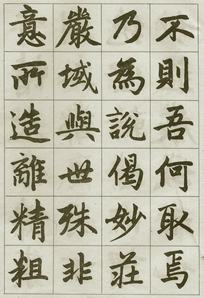 不則吾何取焉
乃為說偈妙莊
嚴域與世殊非
意所造離精粗